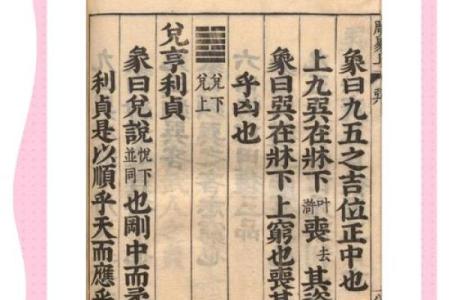 周易上
象曰九五之吉位正中也
上九巽在牀下叶滸喪去其
象曰巽在牀下上窮也喪其
乎凶也
兌下兌上
兌亨利貞
彖曰兌說悅下並同也剛中而柔
利貞是以順乎天而應乎